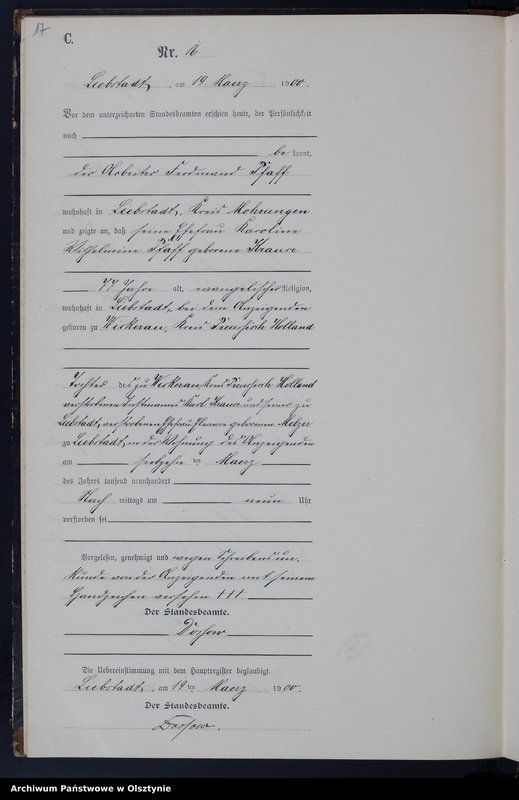 17
C.
Nr. 16
Liebstadt, am 19. Maerz 1900.
Vor dem unterzeichneten Standesbeamten erschien heute, der Persönlichkeit
nach
be kannt,
der Arbeiter Ferdinand Pfaff
wohnhaft in Liebstadt, Kreis Mohrungen
und zeigte an, daß seine Ehefrau Karoline
Wilhelmine Pfaff geborene Krause
77 Jahre alt, evangelischer Religion,
wohnhaft in Liebstadt, bei dem Anzeigenden
geboren zu Weskenau, Kreis Preussisch Holland
Tochter des zu Weskenau, Kreis Preussisch Holland
verstorbenen Karl Krause und seiner zu
Liebstadt, verstorbenen Ehefrau Eleonore geborenen Melzer
zu Liebstadt, in der Wohnung des Anzeigenden
am siebzehn ten Maerz
des Jahres tausend neunhundert
Nach mittags um neun Uhr
verstorben sei
Vorgelesen, genehmigt und wegen Schreibensun-
kunde von der Anzeigenden mit seinem
Handzeichen versehen +++
Der Standesbeamte.
Dossow
Die Uebereinstimmung mit dem Hauptregister beglaubigt
Liebstadt, am 19 ten Maerz 1900.
Der Standesbeamte.
Dossow.
Archiwum Państwowe w Olsztynie